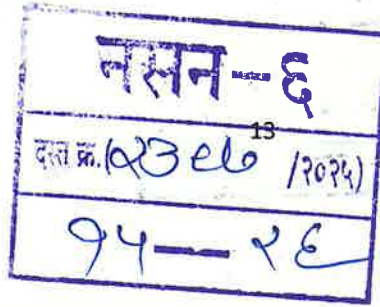 नसन - ६
13
दस्त क्र. (१२३९७ /२०२५)
१५ — २६